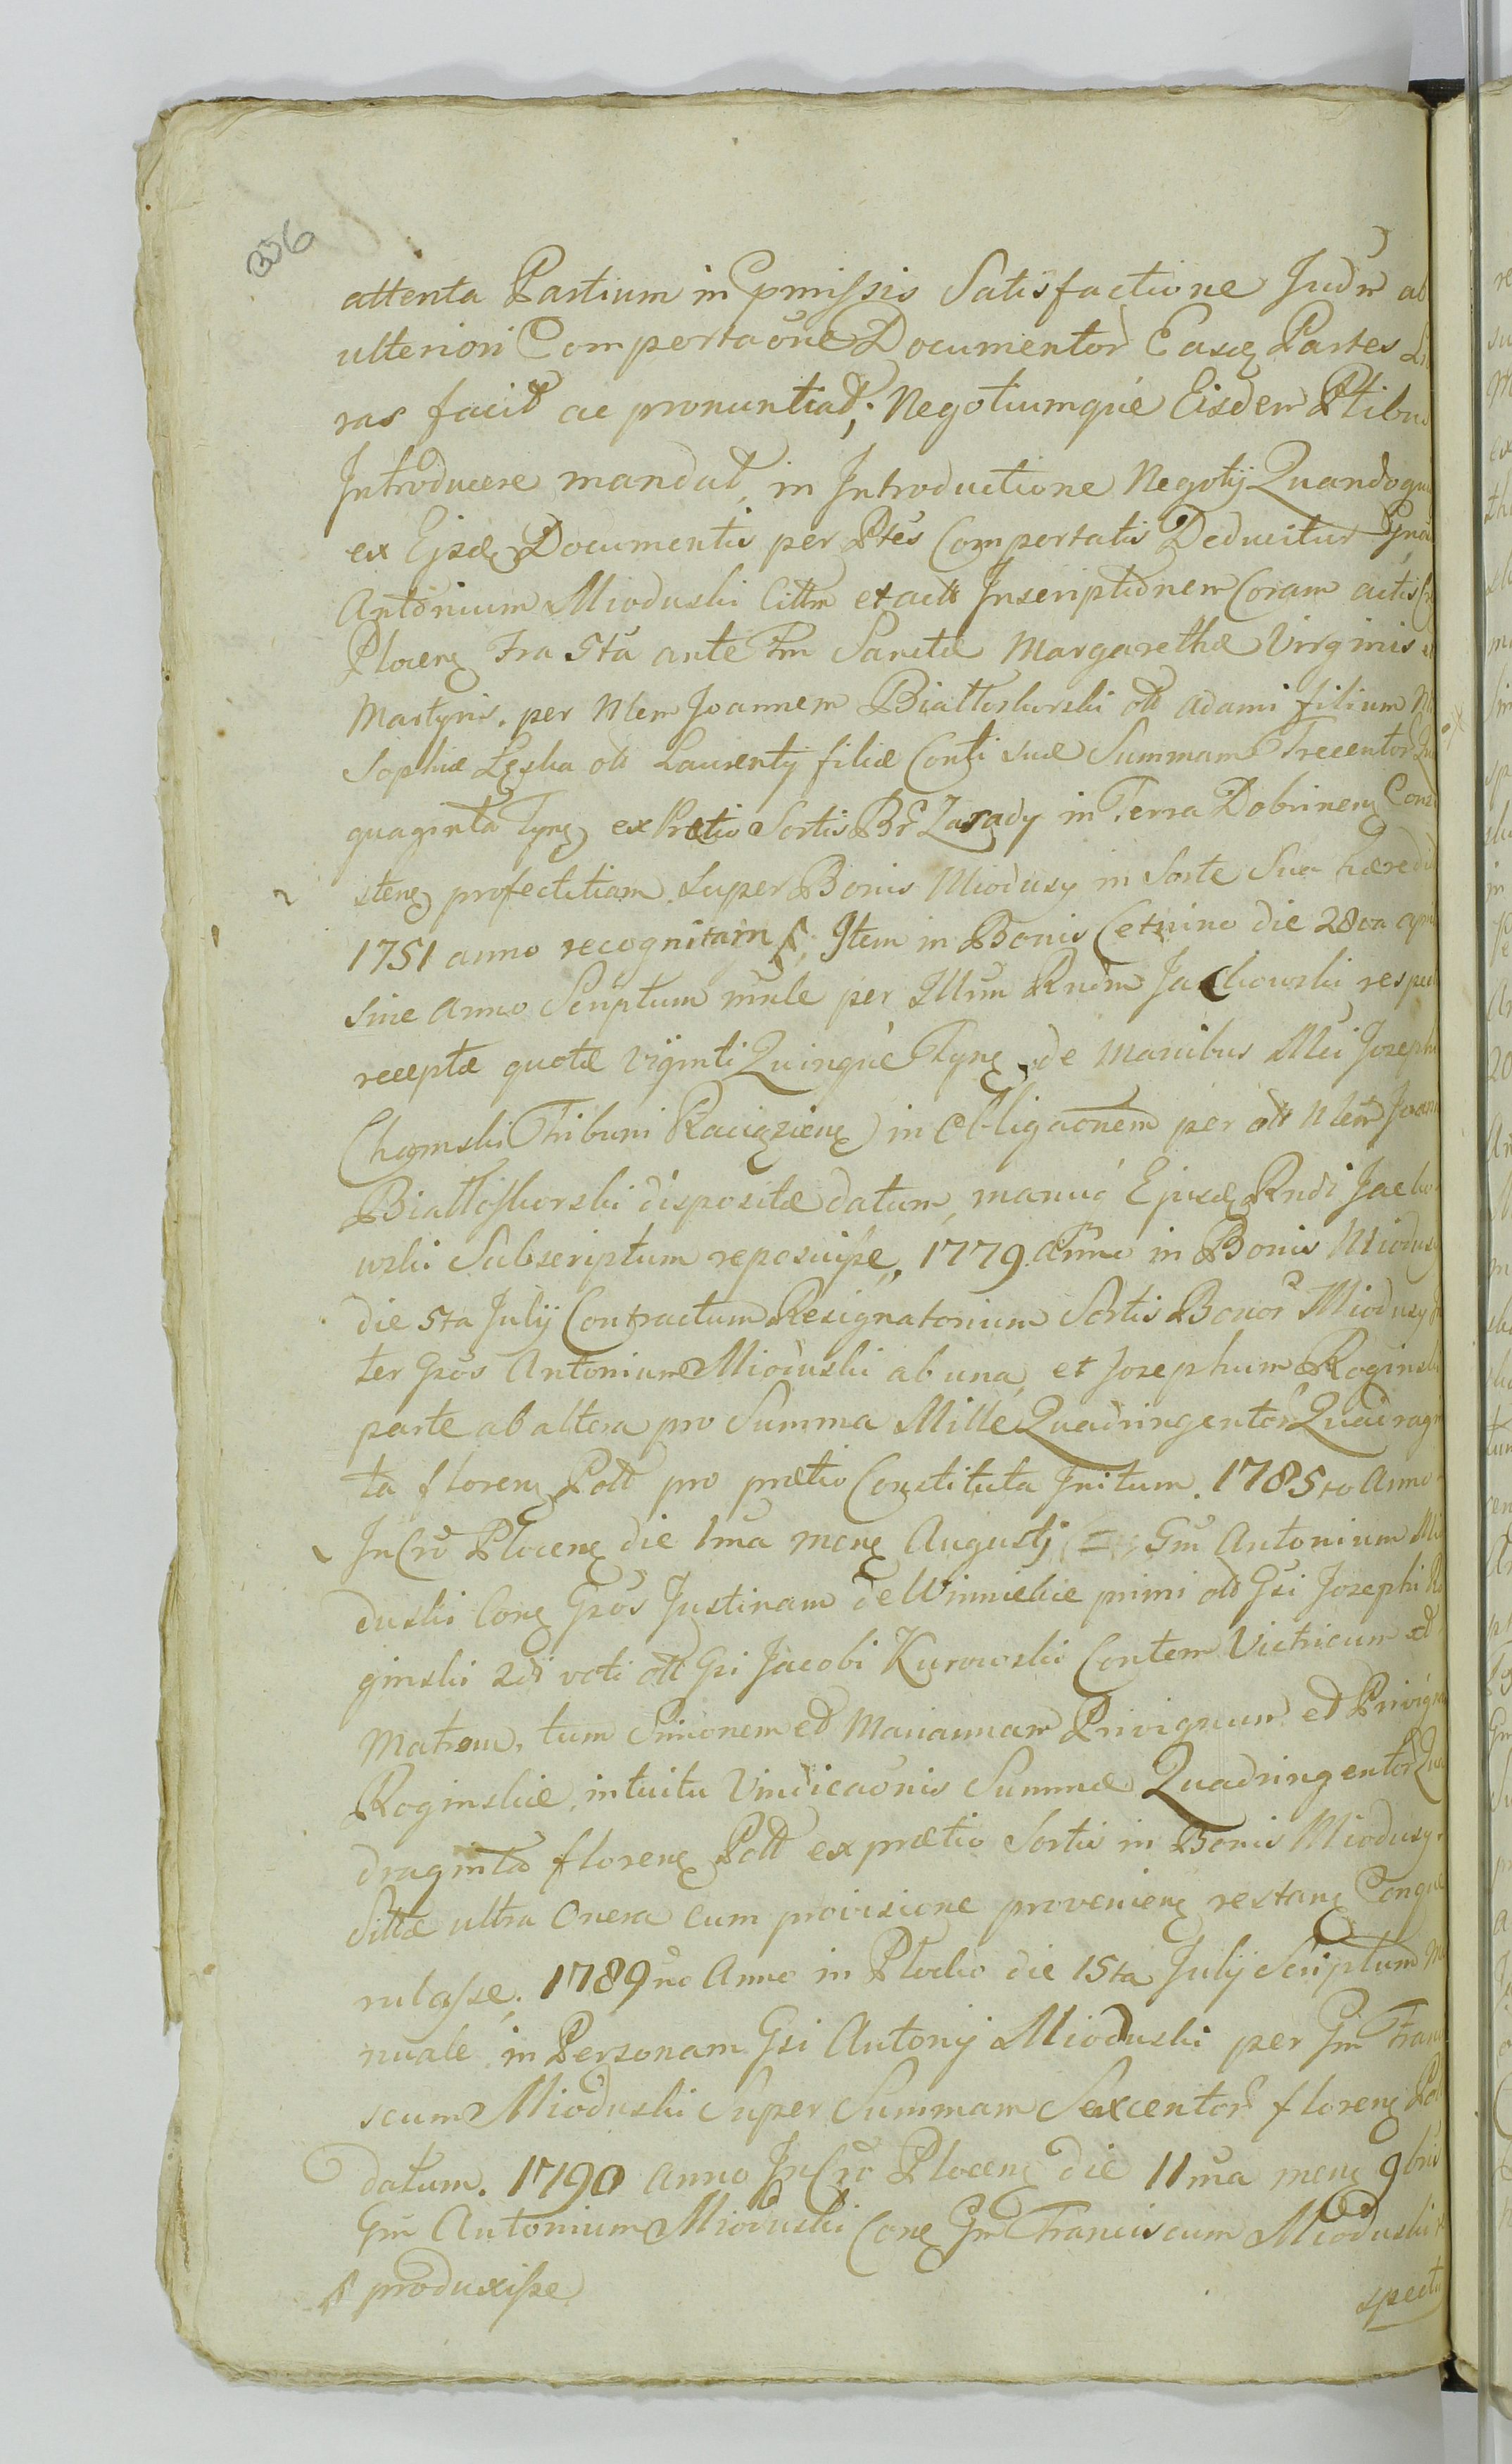 306
attenta Partium in pmissis Satisfactione Judm ab
ulteriori Comportaone Documentor Easq Partes Li
ras facit ac pronuntiat; Negotiumque Eisdem Ptibus
Introducere mandat, in Introductione Negotij Quandoqu
ex Ejsdq Documentis per Ptes Comportatis Deducitur Gnu
Antonium Mioduski Cittm et actt Inscriptionem Coram actis
Plocenq Fra 5ta ante Fm Sanctæ Margarethæ Virginis et
Martyris, per Nlem Joannem Białłoskurski ott Adami filium
Sophiæ Łęska ott Laurentij filiæ Conti suæ Summam Trecentor
quaginta Tynq ex Prætio Sortis Br Zasady in Terra Dobrinenq Consi
stenq profectitiam Super Bonis Miodusy in Sorte Sua hæredit
1751 anno recognitam, Item in Bonis Cetnino die 28va apri
sine Anno Scriptum mnle per Illrm Rndm Jackowski respec
receptæ quotæ Vijnti Quinque Tynq, de Manibus Mci Josephi
Chamski Tribuni Raciązienq in Obligaonem per ott Nlem Joann
Białłoskorski dispositæ datum, manuq Ejusdq Rndi Jacko
wski Subscriptum reposuisse, 1779 Anno in Bonis Miodusy
die 5ta Julij Contractum Resignatorium Sortis Bonor Miodusy
ter Gsos Antonium Mioduski ab una, et Josephum Roginski
parte ab altera pro Summa Mille Quadringentor Quadragi
ta florenq Poll pro prætio Constituta Initum. 1785to Anno
In Cro Plocenq die 1ma menq Augusti Gm Antonium Mi
duski Conq Gsos Justinam de Winnickie primi ott Gsi Josephi Ro
ginski 2di voti ott Gsi Jacobi Kurowski Contem Victricum et
Matrem, tum Simonem et Mariannam Privignum et Privign
Roginskie, intuitu Vindicaonis Summæ Quadringentor Qua
draginta florenq Poll ex prætio Sortis in Bonis Miodusy
Sittæ ultra Onera cum provisione provenienq restanq Conque
rulasse, 1789no Anno in Plocko die 15ta Julij Scriptum Ma
nuale in Personam Gsi Antonij Mioduski per Gm Franci
scum Mioduski Super Summam Sexcentor florenq Poll
datum. 1790 anno In Cro Plocenq die 11ma menq 9bris
Gm Antonium Mioduski Conq Gm Franciscum Mioduski
produxisse
spectu